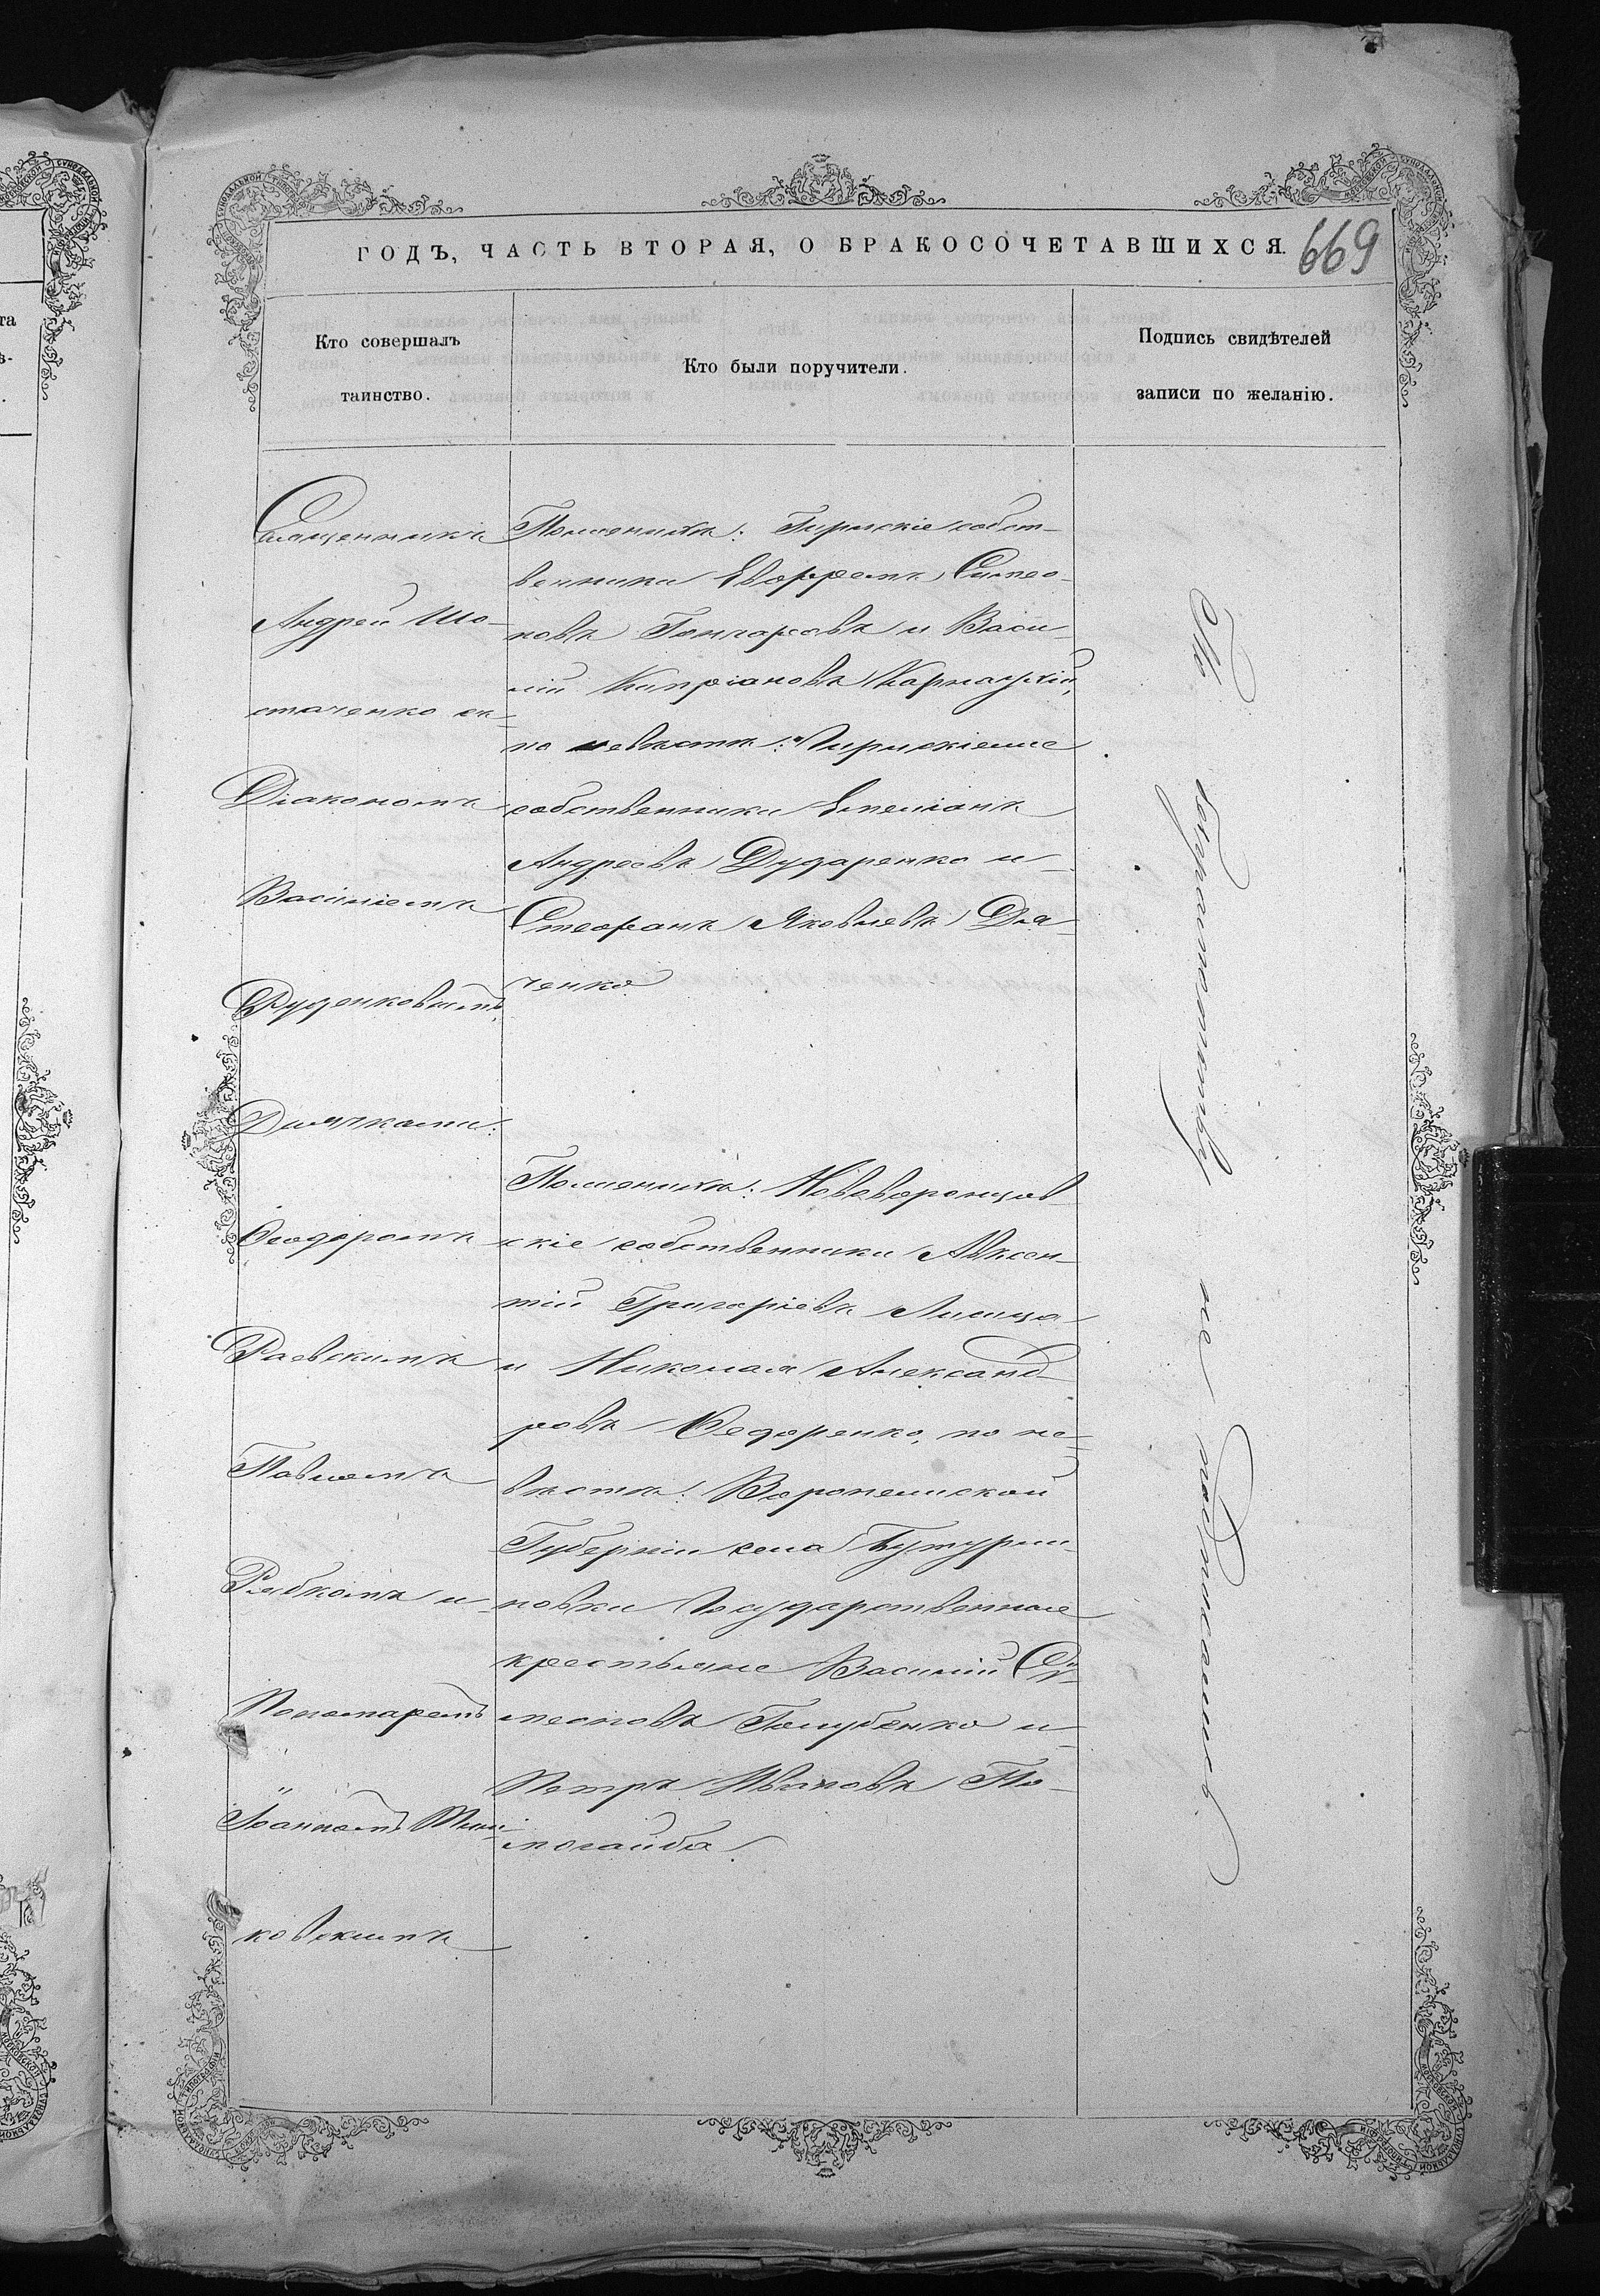 ГОДЪ, ЧАСТЬ ВТОРАЯ, О БРАКОСОЧЕТАВШИХСЯ.
669
Кто совершалъ
таинство.
Кто были поручители.
Подпись свидѣтелей
записи по желанію.
Священникъ
Андрей Шо-
стаченко съ
Діакономъ
Василіемъ
Руденковымъ,
Дьячками:
Ѳеодоромъ
Раевскимъ
Павломъ
Рыбкомъ и
Пономаремъ
Іоанномъ
ковскимъ
По женихѣ: собст-
венники Евфремъ Симео-
новъ Гончаровъ и Васи-
лій Кипріановъ Карнаухій,
по невѣстѣ:
собственники Емеліанъ
Андреевъ Дударенко и
Стефанъ Яковлевъ Дья-
ченко
По женихѣ: Нововоронцов-
скіе собственники Авксен-
тій Григоріевъ Лисица
и Николай Александ-
ровъ Федоренко, по не-
вѣстѣ: Воронежской
Губерніи села Бутурли-
новки Государственные
крестьяне Василій Си-
меоновъ Голубенко и
Петръ Ивановъ По-
могайба